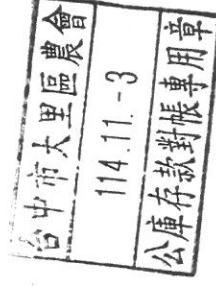 台中市大里區農會
114.11.-3
公庫存款對帳專用章